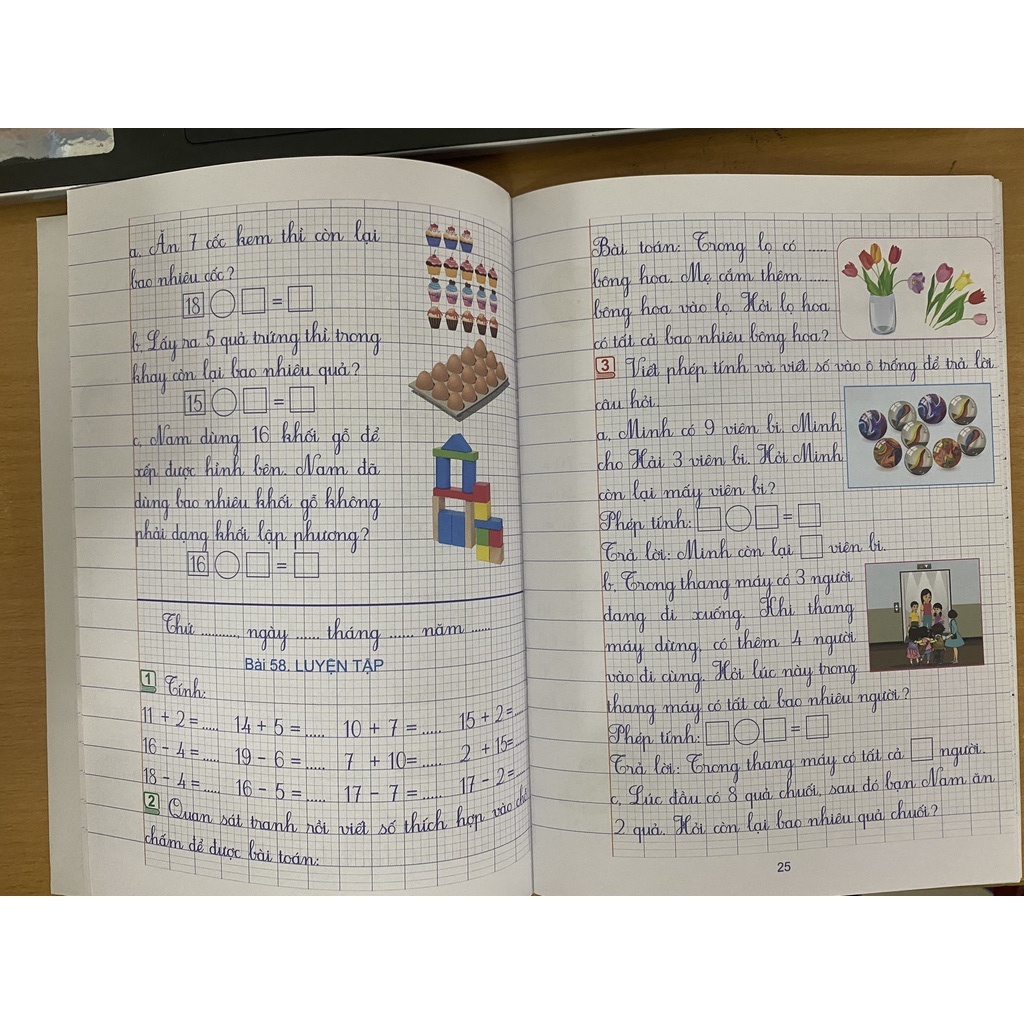 a. Ăn 7 cốc kem thì còn lại
bao nhiêu cốc?
18 =
b. Lấy ra 5 quả trứng thì trong
khay còn lại bao nhiêu quả?
15 =
c. Nam dùng 16 khối gỗ để
xếp được hình bên. Nam đã
dùng bao nhiêu khối gỗ không
phải dạng khối lập phương?
16 =
Thứ .........., ngày ...... tháng ...... năm ......
Bài 58. LUYỆN TẬP
1 Tính:
11 + 2 = ..... 14 + 5 = ..... 10 + 7 = ..... 15 + 2 = .....
16 - 4 = ..... 19 - 6 = ..... 7 + 10 = ..... 2 + 15 = .....
18 - 4 = ..... 16 - 5 = ..... 17 - 7 = ..... 17 - 2 = .....
2 Quan sát tranh rồi viết số thích hợp vào chỗ
chấm để được bài toán:
Bài toán: Trong lọ có .....
bông hoa. Mẹ cắm thêm .....
bông hoa vào lọ. Hỏi lọ hoa
có tất cả bao nhiêu bông hoa?
3 Viết phép tính và viết số vào ô trống để trả lời
câu hỏi.
a. Minh có 9 viên bi. Minh
cho Hải 3 viên bi. Hỏi Minh
còn lại mấy viên bi?
Phép tính: =
Trả lời: Minh còn lại viên bi.
b. Trong thang máy có 3 người
đang đi xuống. Khi thang
máy dừng, có thêm 4 người
vào đi cùng. Hỏi lúc này trong
thang máy có tất cả bao nhiêu người?
Phép tính: =
Trả lời: Trong thang máy có tất cả người.
c. Lúc đầu có 8 quả chuối, sau đó bạn Nam ăn
2 quả. Hỏi còn lại bao nhiêu quả chuối?
25